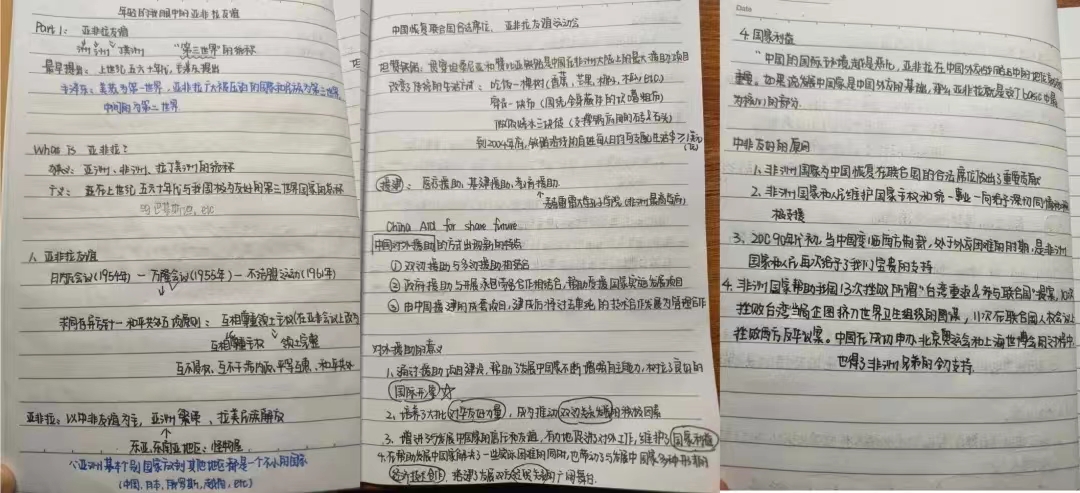 年轻的我眼中的亚非拉友谊
Part 1: 亚非拉友谊
"第三世界"的称呼
最早提出: 上世纪五六十年代, 毛泽东提出
毛泽东: 美苏为第一世界, 亚非拉广大被压迫的国家和民族为第三世界
中间的为第二世界
What is 亚非拉?
狭义: 亚洲、非洲、拉丁美洲的简称
广义: 亚存上世纪五六十年代与我国较为友好的第三世界国家的简称
etc
1. 亚非拉友谊
日内瓦会议(1954年)—万隆会议(1955年)—不结盟运动(1961年)
求同存异方针—和平共处五项原则: 互相尊重领土主权(在亚非会议上改为
互相尊重主权 领土完整
互不侵犯、互不干涉内政、平等互惠、和平共处
亚非拉: 以中非友谊为主, 亚洲 拉美民族解放
东亚、东南亚地区: 怪物房
亚洲基本个别国家放到其他地区都是一个不小的国家
(中国, 日本, 俄罗斯, 韩国, etc)
中国恢复联合国合法席位, 亚非拉友谊运动会
坦赞铁路: 贯穿坦桑尼亚和赞比亚 是中国在非洲大陆上的最大援助项目
改变了 的生活方式: 吃饭一棵树(香蕉, 芒果, etc)
穿衣一块布
做饭烧水三块石
到2004年前,
援建: 医疗援助, 基建援助, 教育援助
China Aid for share future
中国对外援助的方式出现新的特征
① 双边援助与多边援助相结合
② 政府援助与开展承包工程等合作相结合, 帮助受援国家实施发展项目
③ 由中国援建的成套项目, 建成后将过去单纯的技术合作发展为管理合作
对外援助的意义
1. 通过援助成田建设, 帮助了发展中国家不断增强自主能力, 树立了良好的
国际形象 ☆
2. 培养了大批对华友好力量, 成为推动双边关系发展的积极因素
3. 增进了与发展中国家的 和友谊, 有力地促进了对外工作, 维护了国家利益
4. 在帮助发展中国家解决了一些实际困难的同时, 也带动了与发展中国家多种形式的
经济技术合作, 搭建了发展双方经贸关系的广阔舞台.
Date
4. 国家利益
"中国的国际环境越是恶化, 亚非拉在中国外交战略中的地位就越
重要。如果说发展中国家是中国外交的基础, 那么亚非拉就是这个basic中最
为核心的部分.
中非友好的原因
1. 非洲国家为中国恢复在联合国的合法席位做出了重要贡献
2. 非洲国家和人民维护国家主权和统一事业一向给予深切同情和积
极支援
3. 20C 90年代初, 当中国受西方制裁, 处于外交困难的时期, 是非洲
国家和人民再次给予了我们宝贵的支持
4. 非洲国家帮助我国13次挫败所谓"台湾重返&参与联合国"提案, 10次
挫败台湾当局企图挤入世界卫生组织的图谋, 11次在联合国人权会议上
挫败西方反华议案。中国在成功申办北京奥运会和上海世博会的过程中,
也得了非洲兄弟的全力支持.